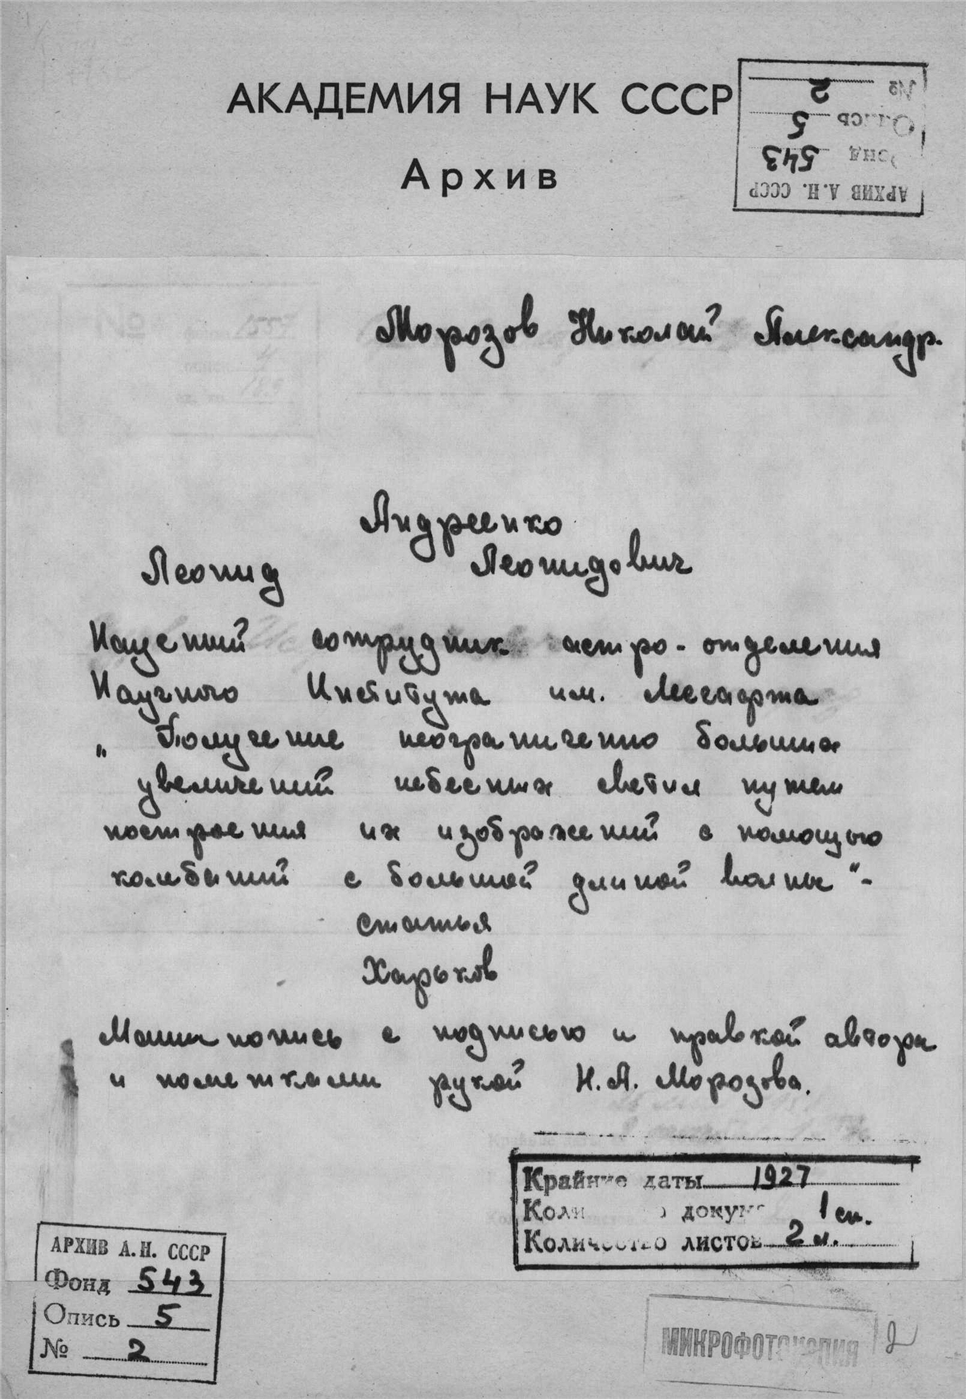 АКАДЕМИЯ НАУК СССР
Архив
АРХИВ А.Н. СССР
Фонд 543
Опись 5
№ 2
Морозов Николай Александр.
Андреенко
Леонид Леонидович
Научный сотрудник астро-отделения
Научного Института им. Лесгафта
„Получение неограниченно больших
увеличений небесных светил путем
построения их изображений с помощью
колебаний с большой длиной волны“-
статья
Харьков
Машинопись с подписью и правкой автора
и пометками рукой Н.А. Морозова.
Крайние даты 1927
Коли докуме 1 еп.
Количество листов 2 л.
АРХИВ А.Н. СССР
Фонд 543
Опись 5
№ 2
МИКРОФОТОКОПИЯ